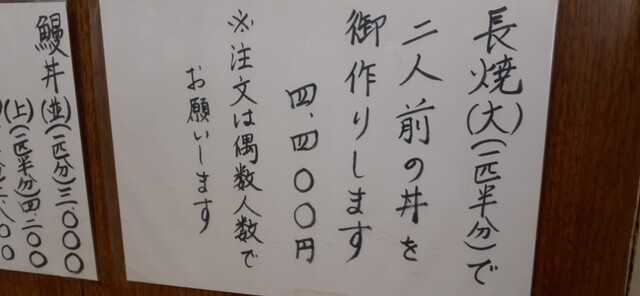 長焼(大)(一匹半分)で
二人前の丼を
御作りします
四.四〇〇円
※注文は偶数人数で
お願いします
鰻丼(並)(一匹分)三.〇〇〇
(上)(一匹半分)四.二〇〇